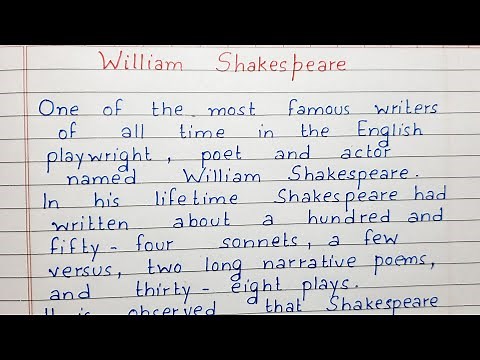 William Shakespeare
One of the most famous writers
of all time in the English
playwright, poet and actor
named William Shakespeare.
In his lifetime Shakespeare had
written about a hundred and
fifty-four sonnets, a few
versus, two long narrative poems,
and thirty-eight plays.
It is observed that Shakespeare